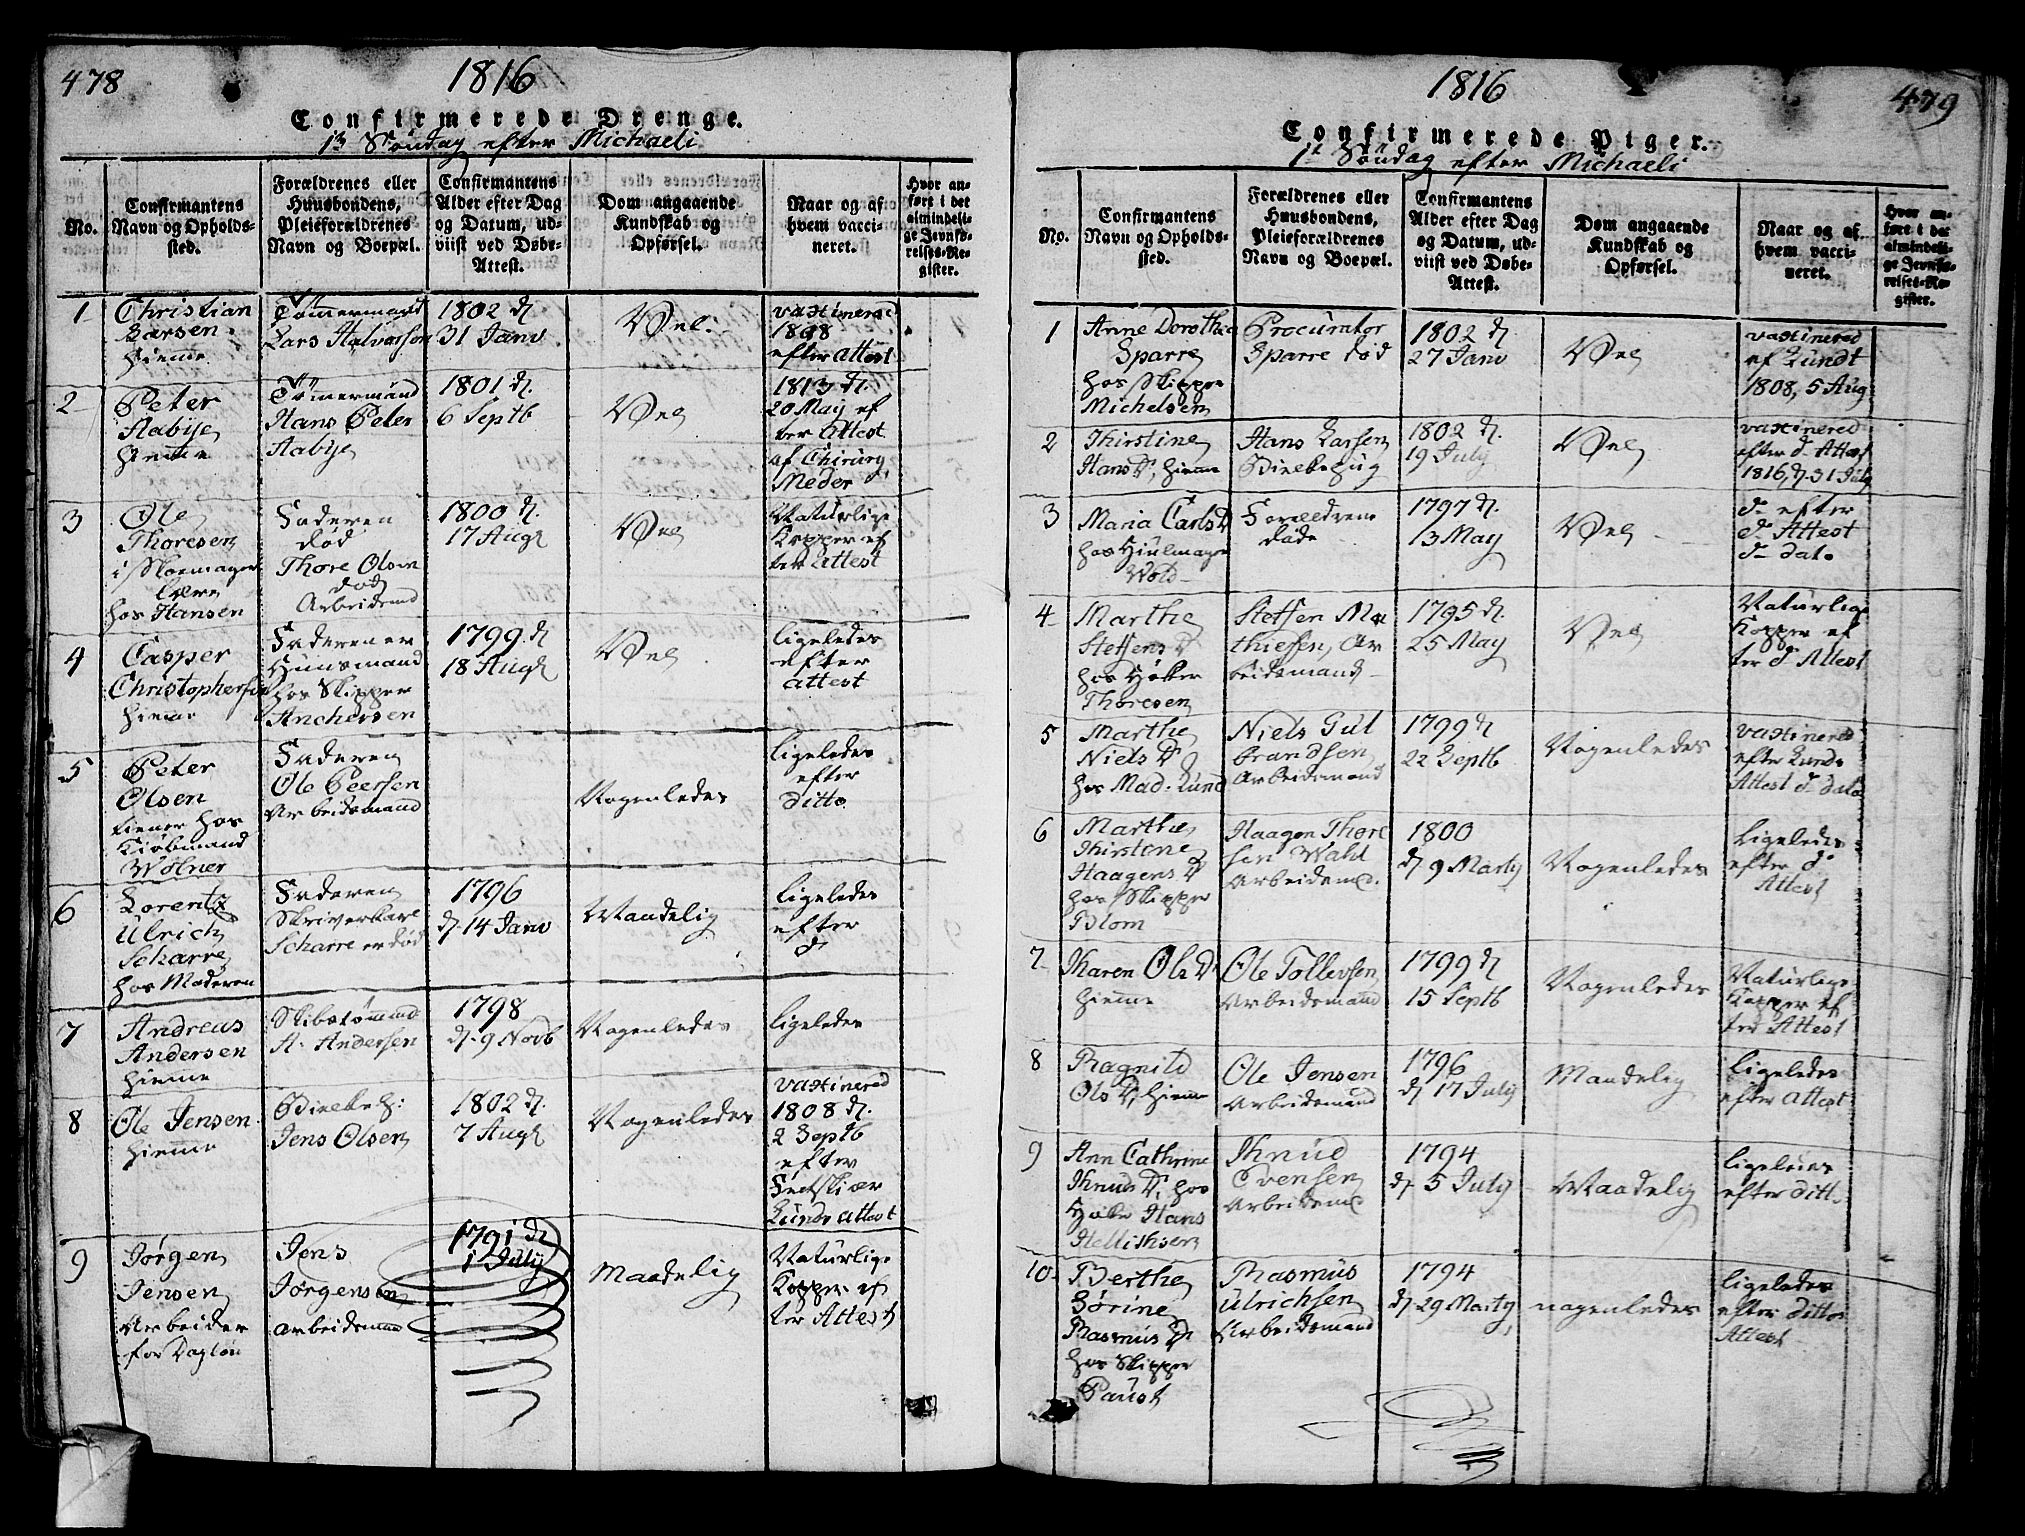 478
1816
Confirmerede Drenge.
1ste Søndag efter Michaeli
No.
Confirmantens
Navn og Opholds-
sted.
Forældrenes eller
Huusbondens,
Pleieforældrenes
Navn og Boepæl.
Confirmantens
Alder efter Dag
og Datum, ud-
viist ved Døbe-
Attest.
Dom angaaende
Kundskab og
Opførsel.
Naar og af
hvem vacci-
neret.
Hvor an-
ført i det
almindeli-
ge Jevnfø-
relses-Re-
gister.
1
Christian
Larsen
hiemme
Tømermand
Lars Halvorsen
1802 d.
31 Janv
Vel.
vaxinered
1808
efter Attest
2
Peter
Aabye
hiemme
Tømermand
Hans Peter
Aabye
1801 d.
6 Septb
Vel
1813 d.
20 May ef
ter Attest
af Chirurg
Meder
3
Ole
Thoresen
i Skomager
Lære
hos Hansen
Faderen
død
Thore Olsen
død
Arbeidsmd
1800 d.
17 Augt
Vel
Naturlige
Kopper ef
ter Attest
4
Casper
Christophersen
hiemme
Faderen er
Huusmand
hos Skipper
Anchersen
1799 d.
18 Augt
Vel
ligeledes
efter
Attest
5
Peter
Olsen
tiener hos
Kiøbmand
Wølner
Faderen
Ole Peersen
Arbeidsmand
Nogenledes
ligeledes
efter
ditto
6
Lorentz
Ulrich
Scharre
hos Moderen
Faderen
Skriverkarl
Scharre er død
1796
d. 14 Janv
Maadelig
ligeledes
efter
d
7
Andreas
Andersen
hiemme
Skibstømmd
A. Andersen
1798
d. 9 Novb
Nogenledes
ligeledes
8
Ole Jensen
hiemme
Jens Olsen
1802 d.
7 Augt
Nogenledes
vaxinered
1808 d.
2 Septb
efter
Lunds Attest
9
Jørgen
Jensen
Arbeider
for Dagløn
Jens
Jørgensen
arbeidsman
1791 d.
1 July
Maadelig
Naturlige
Kopper ef
ter Attest
479
1816
Confirmerede Piger.
1te Søndag efter Michaeli
No.
Confirmantens
Navn og Opholds-
sted.
Forældrenes eller
Huusbondens,
Pleieforældrenes
Navn og Boepæl.
Confirmantens
Alder efter Dag
og Datum, ud-
viist ved Døbe-
Attest.
Dom angaaende
Kundskab og
Opførsel.
Naar og af
hvem vacci-
neret.
Hvor an-
ført i det
almindeli-
ge Jevnfø-
relses-Re-
gister.
1
Anne Dorothea
Sparre
hos Skipper
Michelsen
Procurator
Sparre død
1802 d.
27 Janv
Vel
vaxinered
af Lundt
1808, 5 Aug
2
Khirstine
Hans D., hiemme
Hans Larsen
1802 d.
19 July
Vel
vaxinered
efter d- Attest
1816, d. 31 July
3
Maria Carls D
hos Hiulmager
Wold
Forældrene
døde
1797 d.
13 May
Vel
d- efter
d- Attest
d- dato
4
Marthe
Steffens D
hos Høker
Thoresen
Steffen Ma
thiesen, Ar
beidsmand
1795 d.
25 May
Vel
Naturlige
Kopper ef
ter d. Attest
5
Marthe
Niels D
hos Mad. Lund
Niels Gul
brandsen
Arbeidsmand
1799 d
22 Septb
Nogenledes
vaxinered
efter Lunds
Attest d- dato
6
Marthe
Khirstene
Haagens D
hos Skipper
Blom
Haagen Thore
sen Wahl
Arbeidsmd.
1800
d. 9 Marty
Nogenledes
ligeledes
efter d-
Attest
7
Karen Ols D.
hiemme
Ole Tollevsen
Arbeidsmand
1799 d
15 Septb
Nogenledes
Naturlige
Kopper ef
ter Attest
8
Ragnild
Ols D, hiemme
Ole Jensen
Arbeidsmand
1796
d. 17 July
Maadelig
ligeledes
efter Attest
9
Ann Cathrine
Khnuds D, hos
Høker Hans
Khnud
Evensen
Arbeidsmd
1794
d. 5 July
Maadelig
ligeledes
efter ditto
10
Berthe
Sørine
Rasmus D.
hos Skipper
Paust
Rasmus
Ulrichsen
Arbeidsmand
1794
d. 29 Marty
nogenledes
ligeledes
efter ditto
Attest